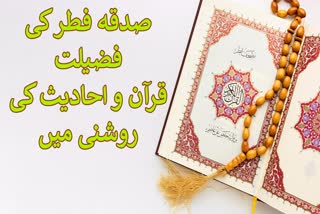 صدقہ فطر کی
فضیلت
قرآن و احادیث کی
روشنی میں